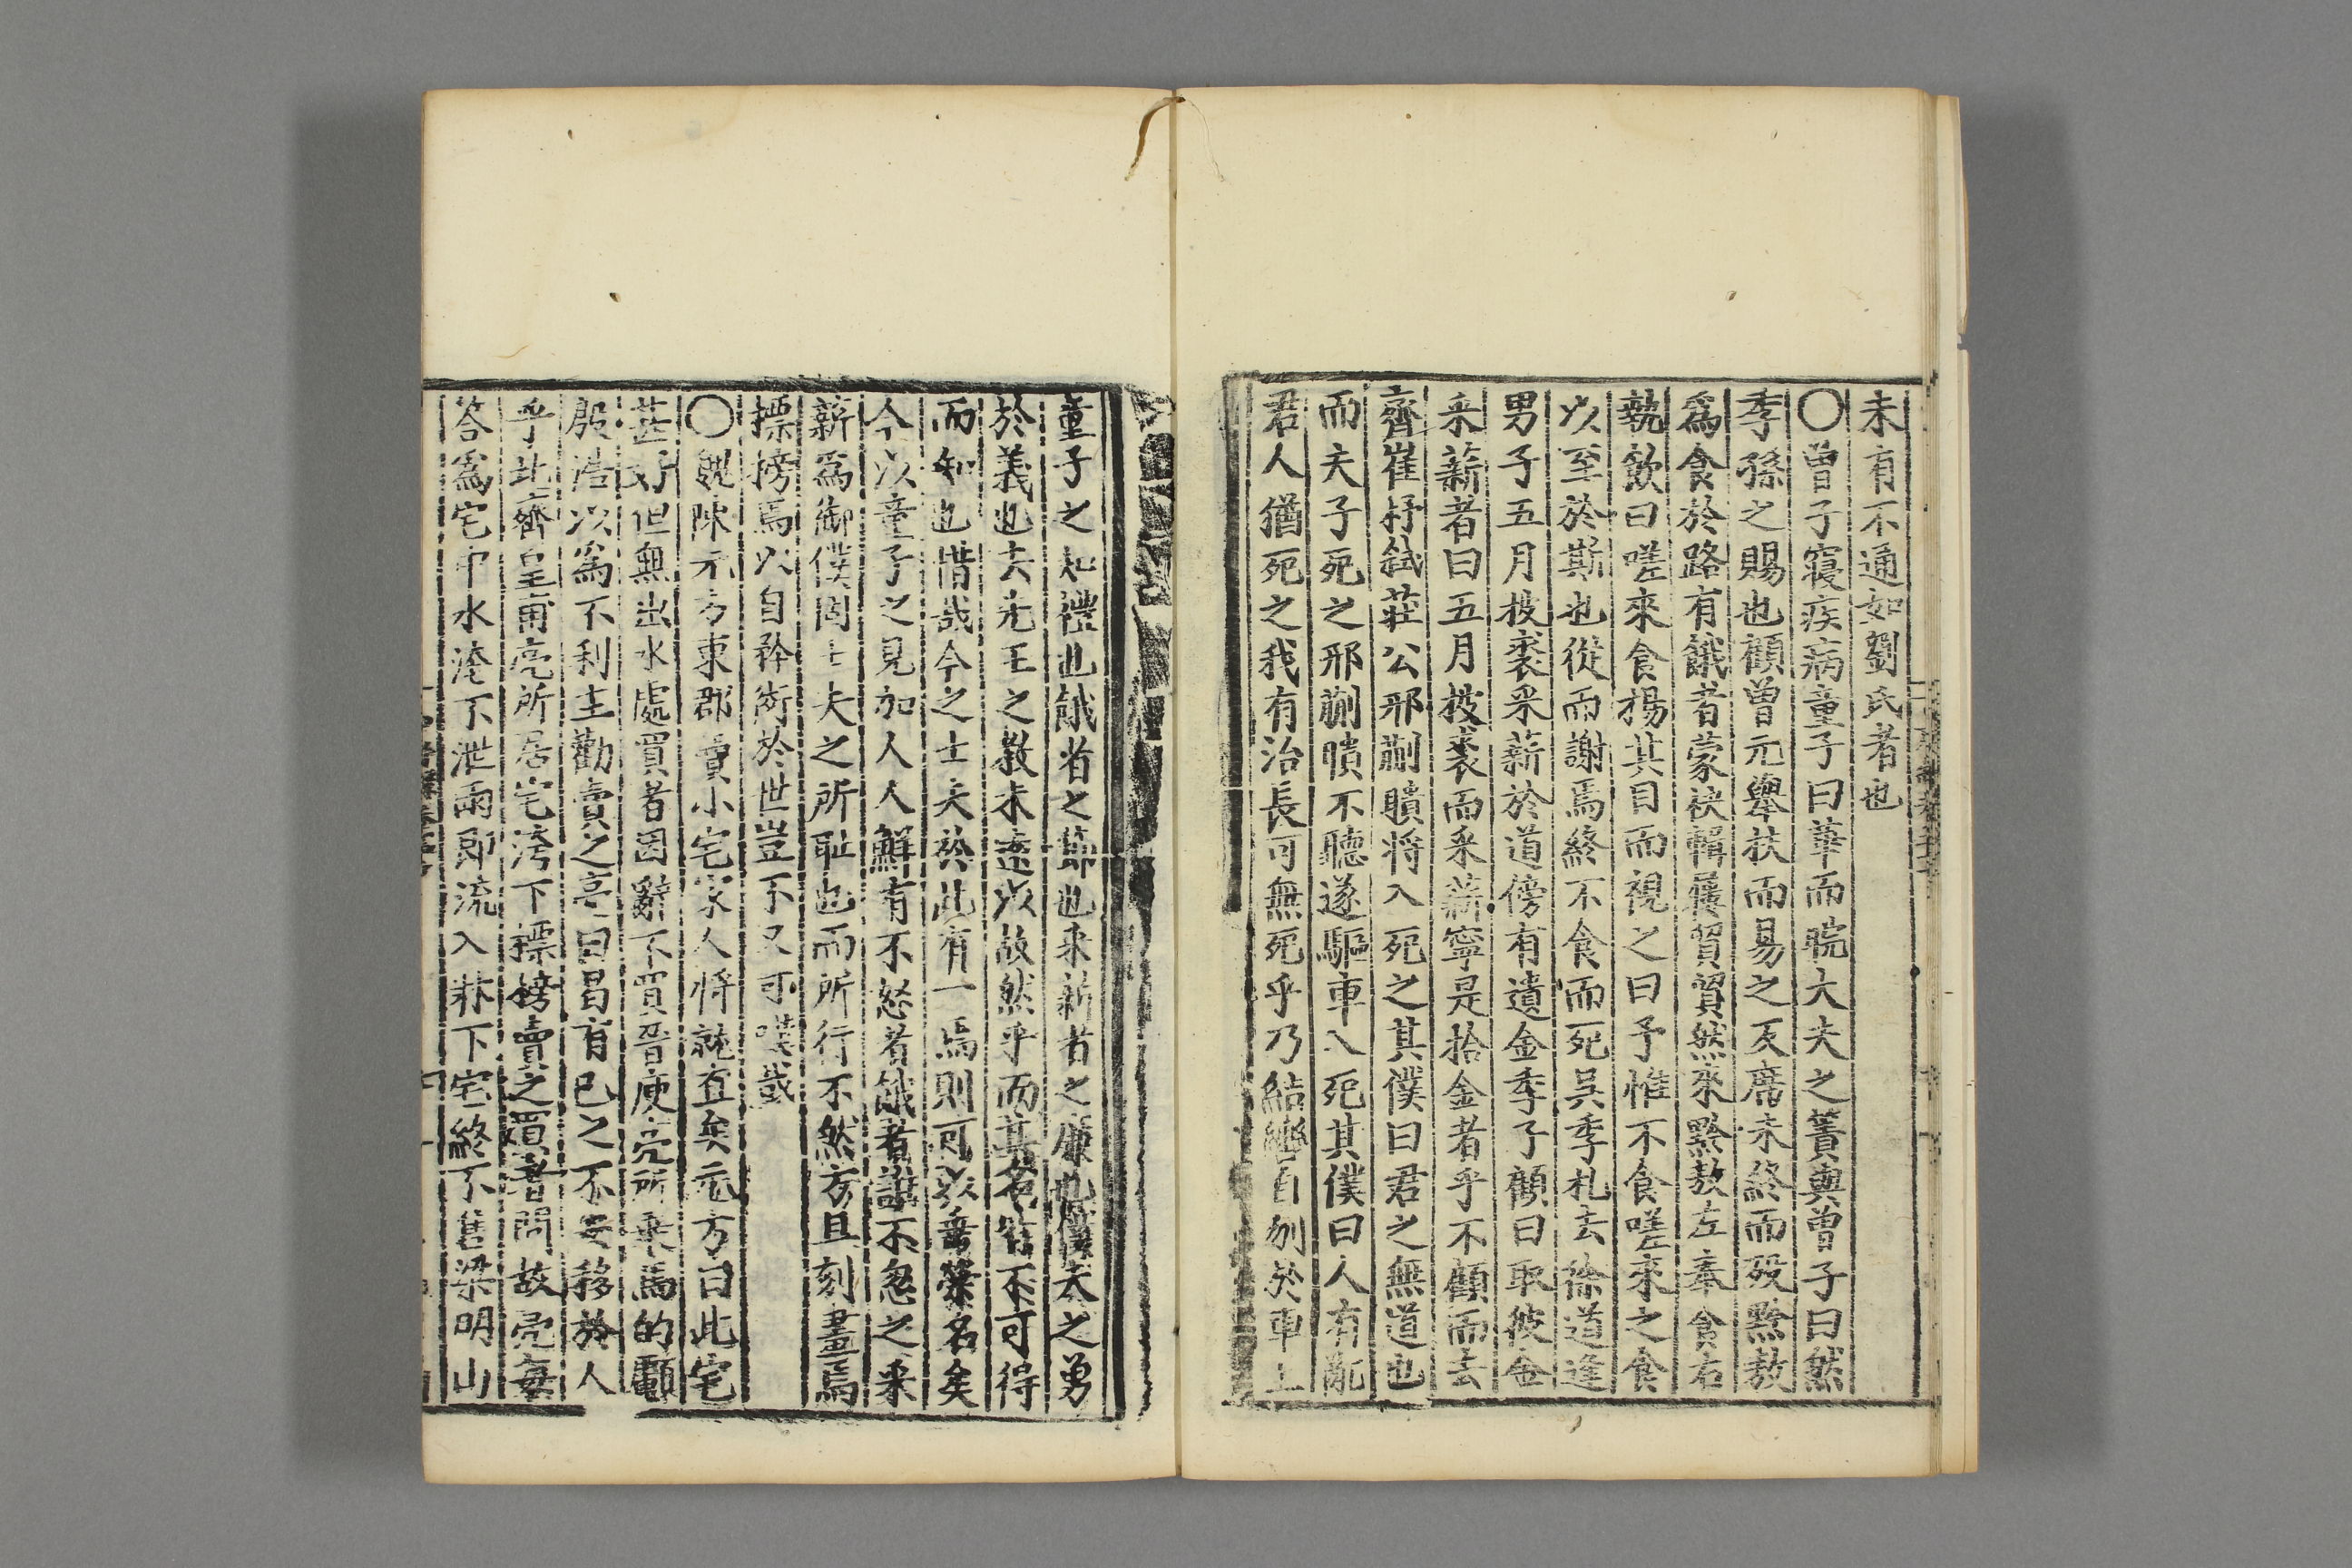 未有不通如劉氏者也
〇曾子寢疾病童子曰華而睆大夫之簀與曾子曰然
季孫之賜也顧曾元舉扶而易之反席未終而歿黔敖
爲食於路有餓者蒙袂輯屨貿貿然來黔敖左奉食右
執飲曰嗟來食揚其目而視之曰予惟不食嗟來之食
以至於斯也從而謝焉終不食而死吳季札去徐道逢
男子五月披裘采薪於道傍有遺金季子顧曰取彼金
采薪者曰五月披裘而采薪寧是拾金者乎不顧而去
齊崔抒弒莊公邢蒯聵將入死之其僕曰君之無道也
而夫子死之邪蒯聵不聽遂驅車入死其僕曰人有亂
君人猶死之我有治長可無死乎乃結轡自刎於車上
童子之知禮也餓者之節也采薪者之廉也僕夫之勇
於義也夫先王之教未遠以故然乎而其名皆不可得
而知也惜哉今之士夫於此有一焉則可以垂榮名矣
今以童子之見加人人鮮有不怒者餓者讓不怨之采
薪爲御僕固士夫之所耻也而所行不然方且刻畫焉
摽榜焉以自矜衒於世豈不又可嘆哉
〇魏陳元方東郡賣小宅家人將就直矣元方曰此宅
甚好但無出水處買者因辭不買晉庾亮所乘馬的顱
殷浩以爲不利主勸賣之亮曰曷有已之不安移於人
乎北齊皇甫亮所居宅洿下摽榜賣之買者問故亮每
答爲宅中水淹不泄雨即流入牀下宅終不售梁明山